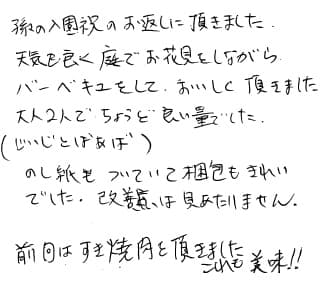 孫の入園祝のお返しに頂きました.
天気も良く庭でお花見をしながら
バーベキュをして.おいしく頂きました
大人2人でちょうど良い量でした.
(じいじとばあば)
のし紙もついていて梱包もきれい
でした.改善点は見あたりません.
前回はすき焼肉を頂きました
これも美味!!